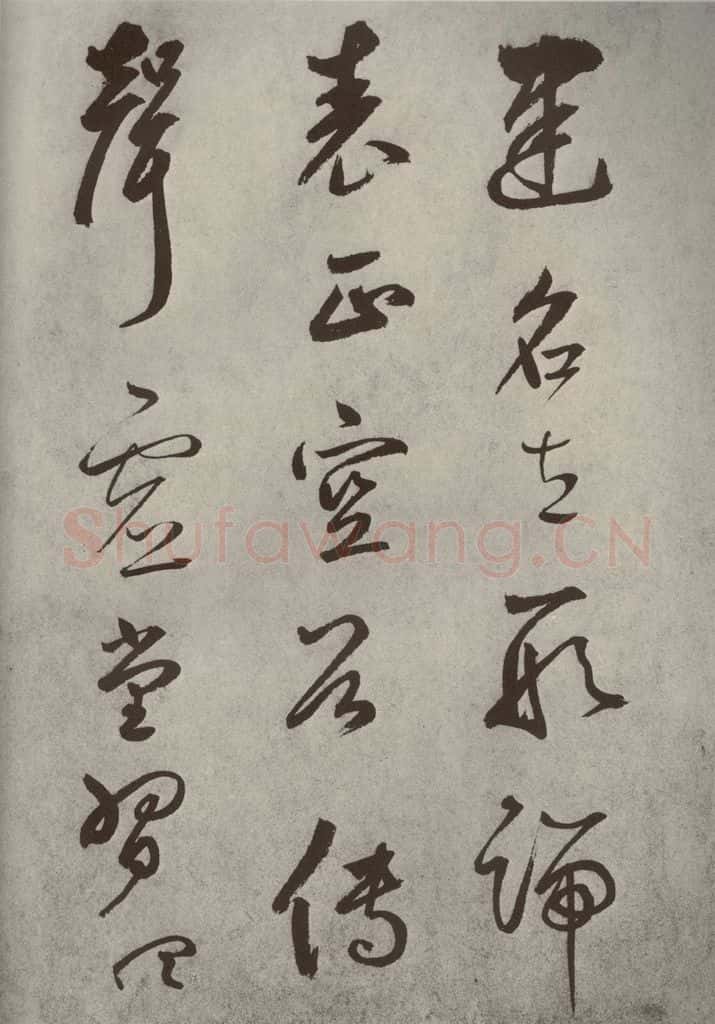 建名立形端
表正空谷傳
聲虛堂習聽
Shufawang.CN